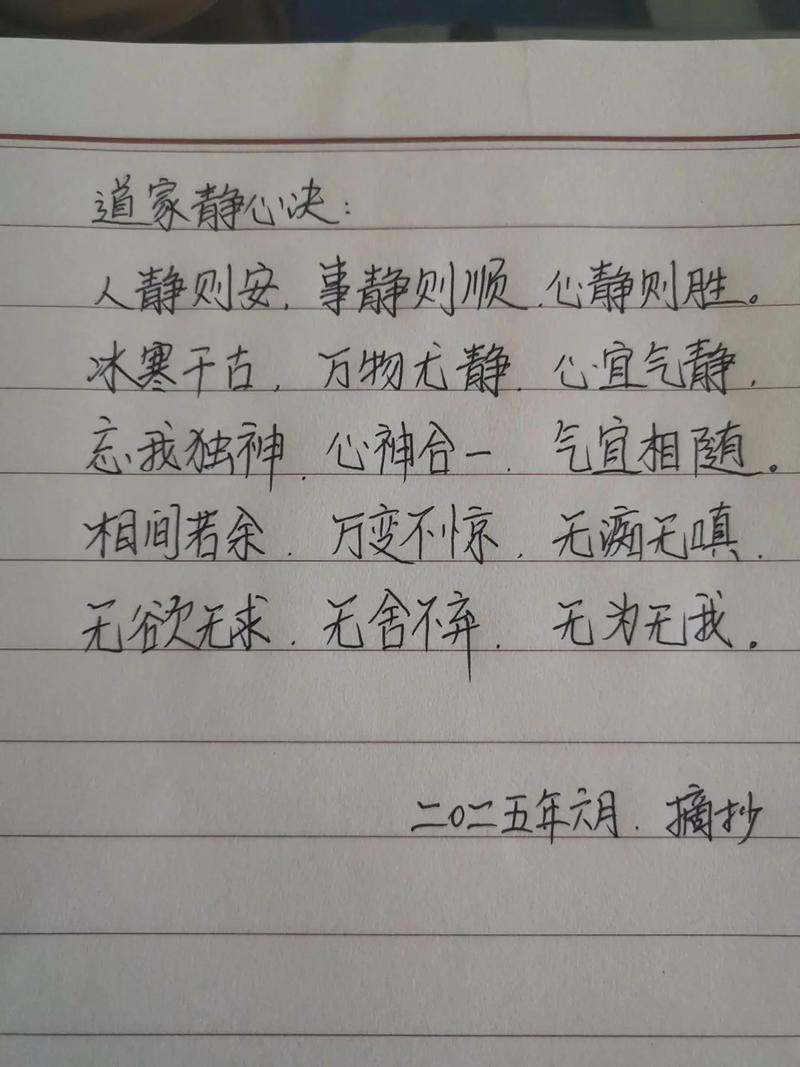 道家静心决：
人静则安，事静则顺，心静则胜。
冰寒千古，万物尤静，心宜气静，
忘我独神，心神合一，气宜相随。
相间若余，万变不惊，无痴无嗔，
无欲无求，无舍不弃，无为无我。
二〇二五年六月．摘抄